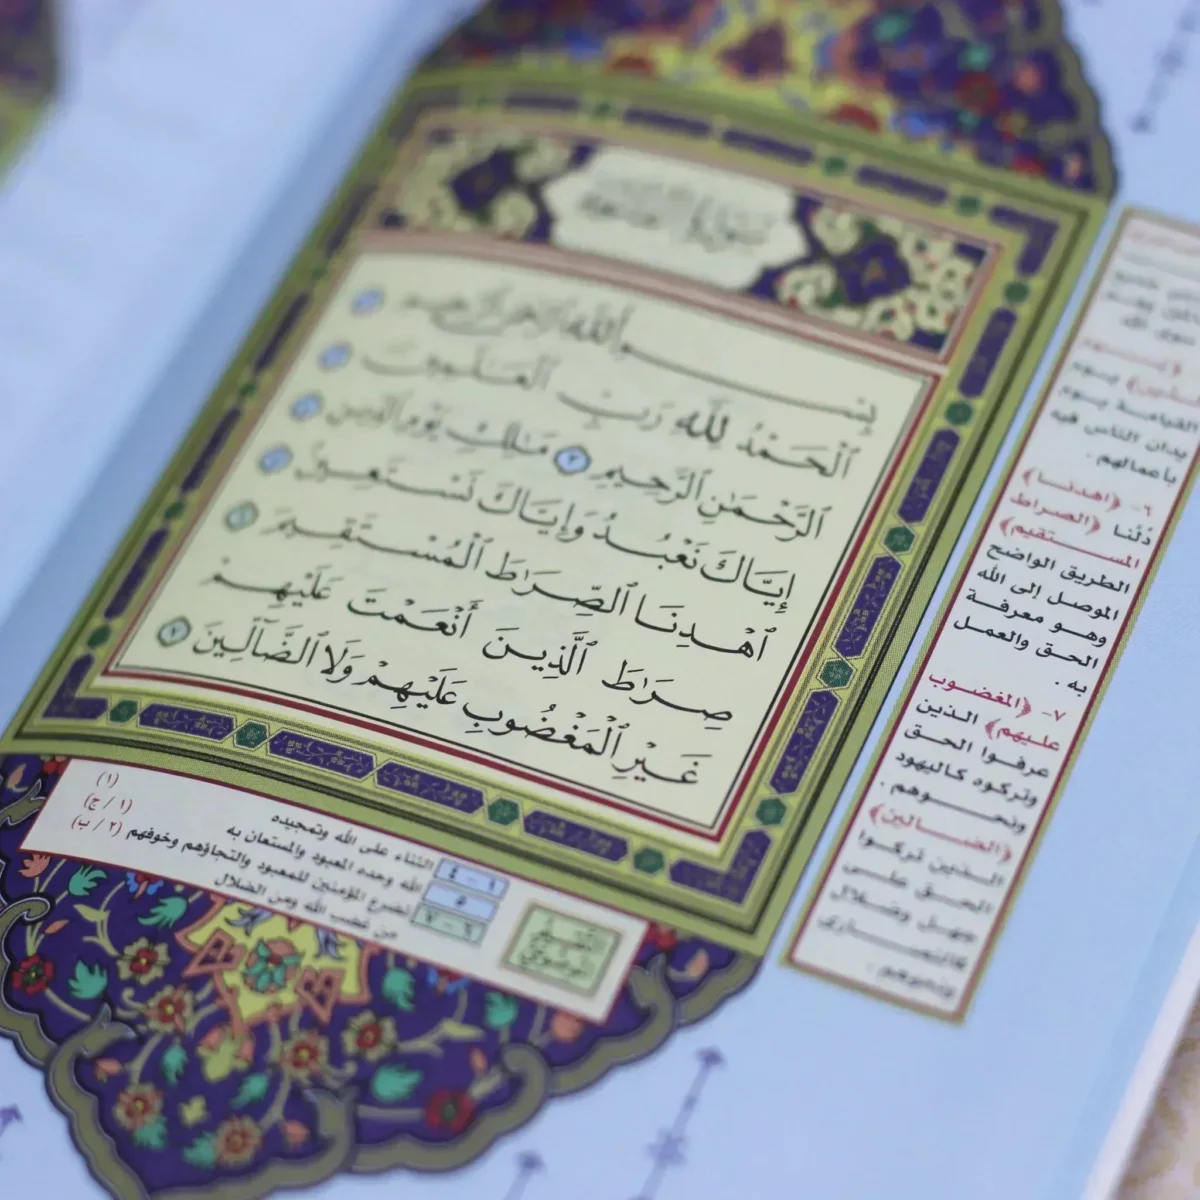 سورة الفاتحة
بِسْمِ ٱللَّهِ ٱلرَّحْمَٰنِ ٱلرَّحِيمِ ١
ٱلْحَمْدُ لِلَّهِ رَبِّ ٱلْعَٰلَمِينَ ٢
ٱلرَّحْمَٰنِ ٱلرَّحِيمِ ٣ مَٰلِكِ يَوْمِ ٱلدِّينِ ٤
إِيَّاكَ نَعْبُدُ وَإِيَّاكَ نَسْتَعِينُ ٥
ٱهْدِنَا ٱلصِّرَٰطَ ٱلْمُسْتَقِيمَ ٦
صِرَٰطَ ٱلَّذِينَ أَنْعَمْتَ عَلَيْهِمْ
غَيْرِ ٱلْمَغْضُوبِ عَلَيْهِمْ وَلَا ٱلضَّآلِّينَ ٧
١ - ٤ الثناء على الله وتمجيده (١)
٥ الله وحده المعبود والمستعان به (١ / ج)
٦ - ٧ تضرع المؤمنين للمعبود والتجاؤهم وخوفهم (٢ / ب)
من غضب الله ومن الضلال
التقسيم
الموضوعي
سوى الله
﴿يـوم
الدين﴾ يـوم
القيامة يوم
يدان الناس فيه
بأعمالهم .
٦- ﴿اهدنـا﴾
دُلّنا ﴿الصراط
المستقيم﴾
الطريق الواضح
الموصل إلى الله
وهو معرفة
الحق والعمل
به .
٧- ﴿المغضوب
عليهم﴾ الذين
عرفوا الحق
وتركوه كاليهود
ونحـوهم .
﴿الضـالين﴾
الـذين تركـوا
الحق على
جهل وضلال
كالنصـارى
ونحوهم .